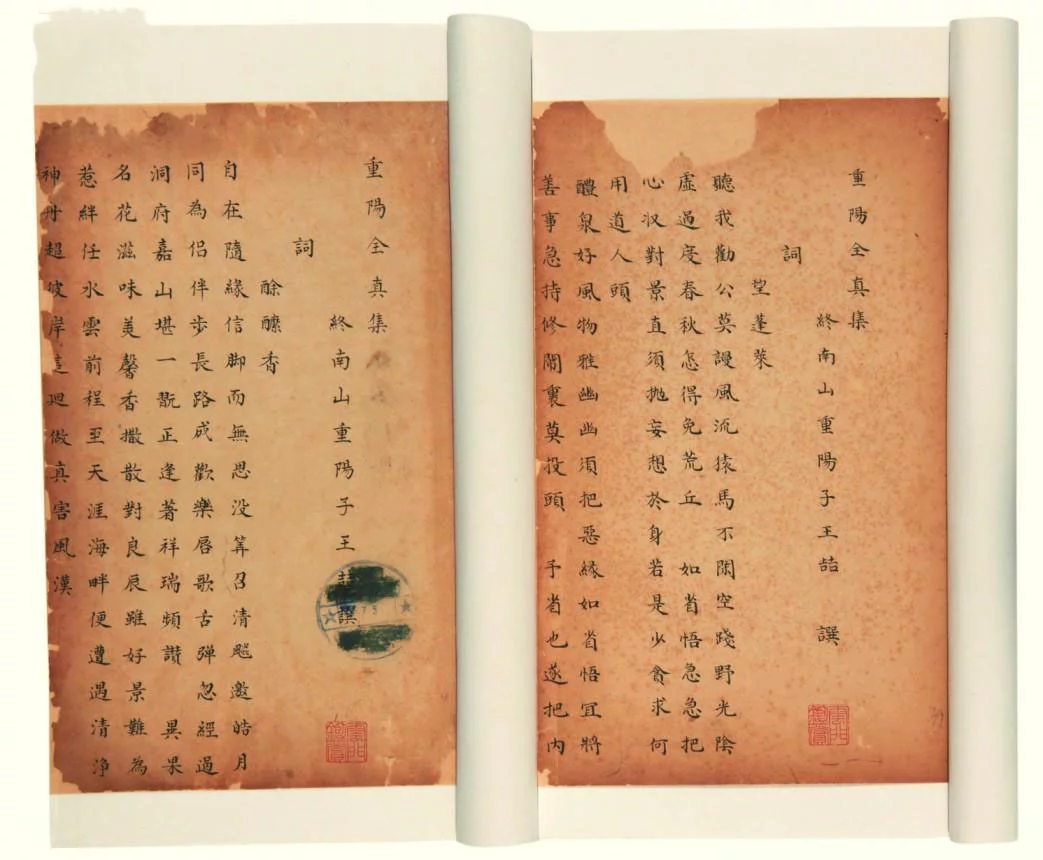 重陽全真集
終南山重陽子王喆 撰
詞
望蓬萊
聽我勸公莫謾風流猿馬不閑空踐野光陰
虛過度春秋怎得免荒丘 如省悟急急把
心収對景直須拋妄想於身若是少貪求何
用道人頭
醴泉好風物雅幽幽須把惡緣如省悟宜將
善事急持修鬧裏莫投頭 予省也遂把內
重陽全真集
終南山重陽子王 撰
詞
酴醿香
自在隨緣信脚而無思没筭召清飈邀皓月
同為侶伴步長路成歡樂唇歌舌彈忽經過
洞府嘉山堪一翫正逢著祥瑞頻讚 異果
名花滋味美馨香撒散對良辰雖好景難為
惹絆任水雲前程至天涯海畔便遭遇清淨
神丹超彼岸這迴做真害風漢